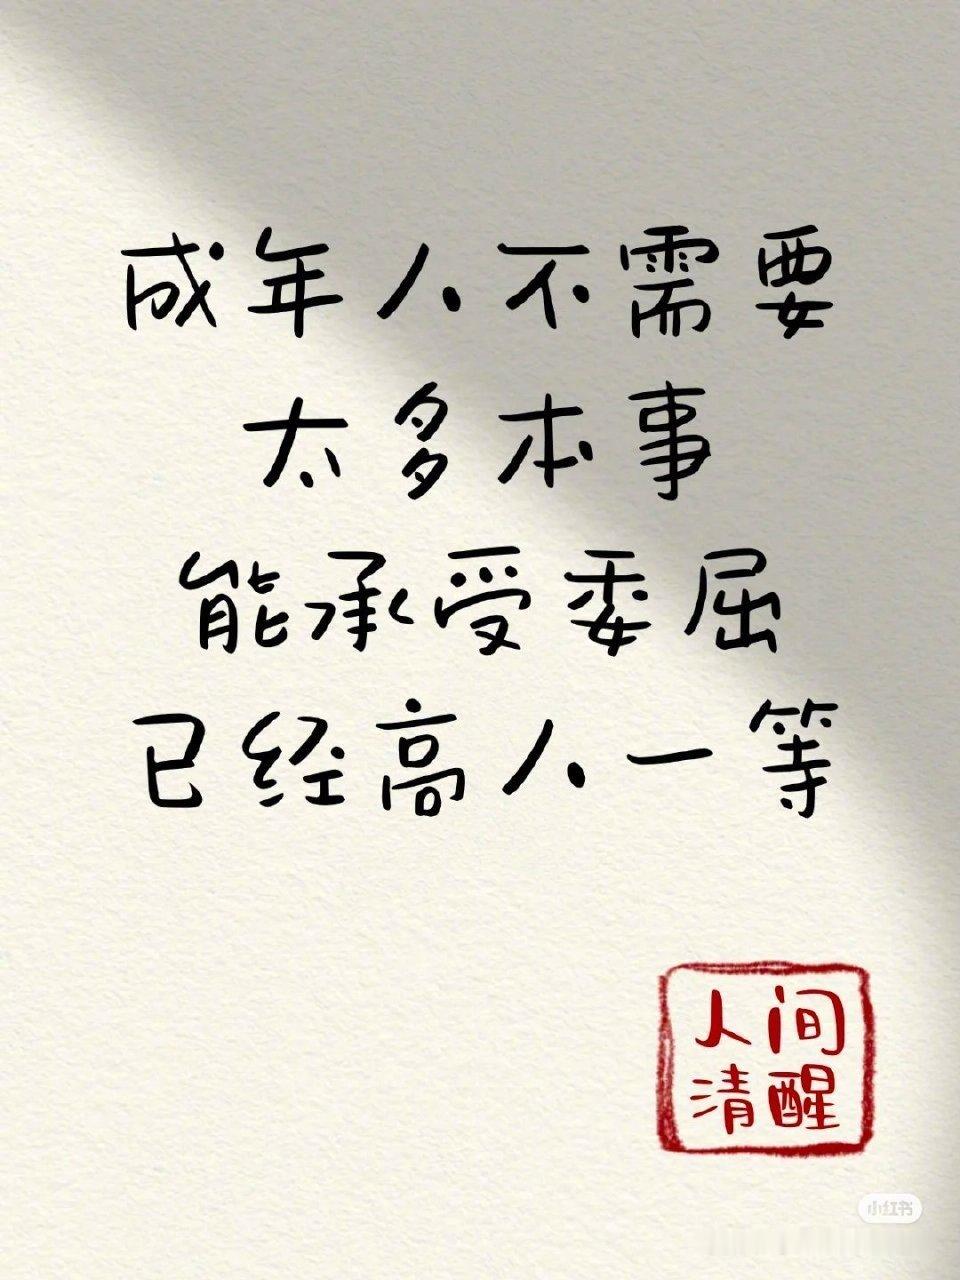 成年人不需要
太多本事
能承受委屈
已经高人一等
人间
清醒
小红书